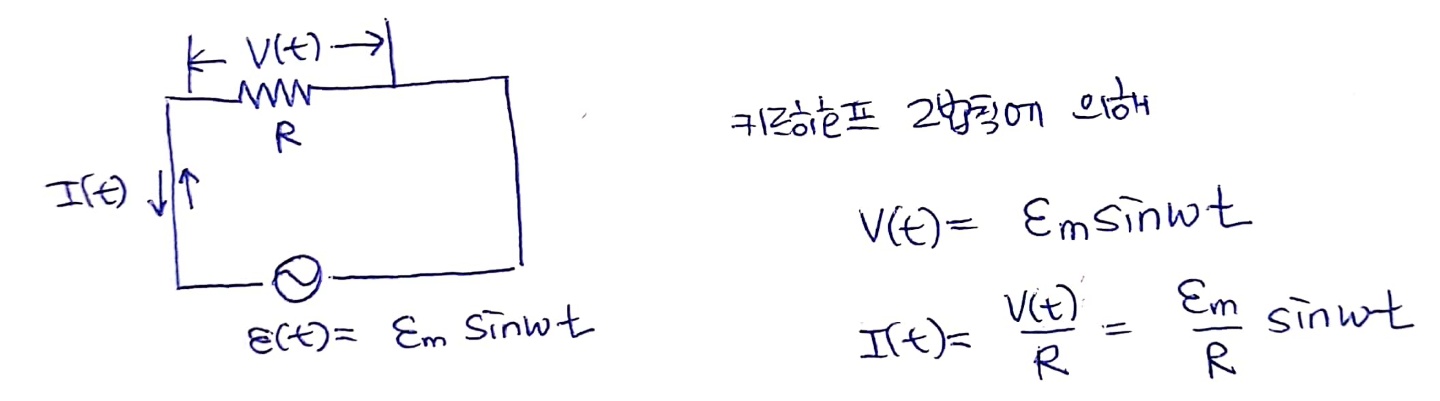 V(t)
R
I(t)
ε(t)= εm sinwt
키르히호프 2법칙에 의해
V(t)= εm sinwt
I(t)= V(t)/R = εm/R sinwt